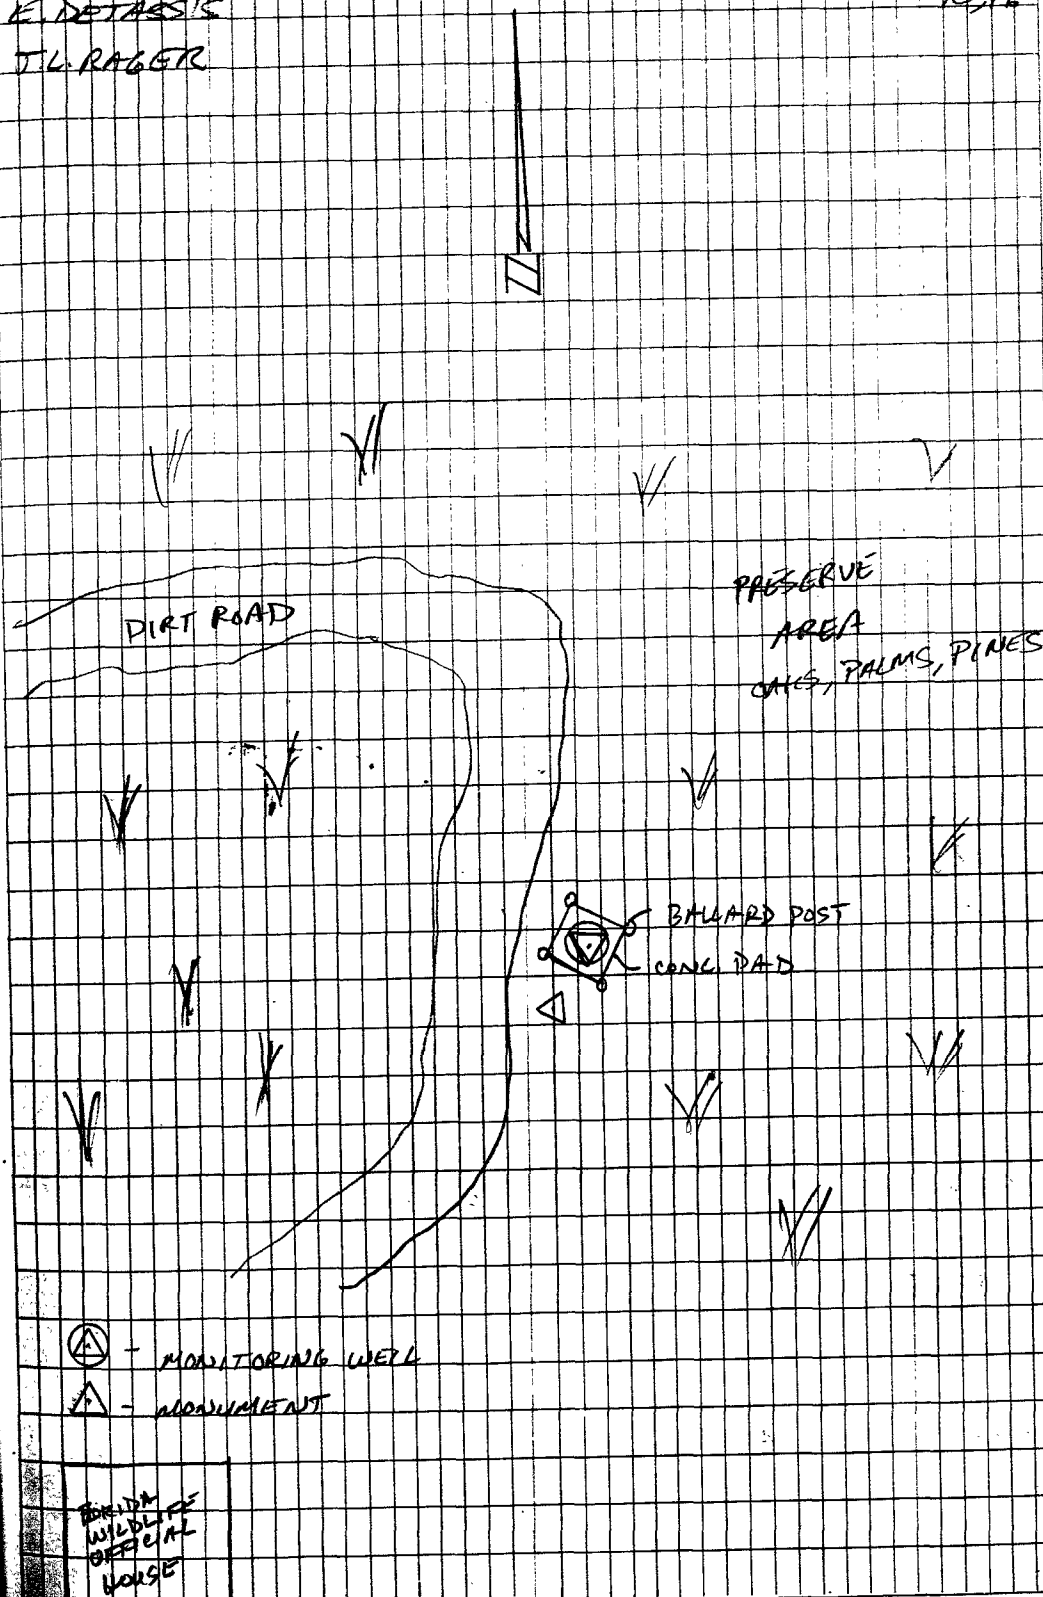 E. DETASSIS
J.L. RAGER
N
DIRT ROAD
PRESERVE
AREA
OAKS, PALMS, PINES
BALLARD POST
CONC. PAD
- MONITORING WELL
- MONUMENT
FLORIDA
WILDLIFE
OFFICIAL
HOUSE